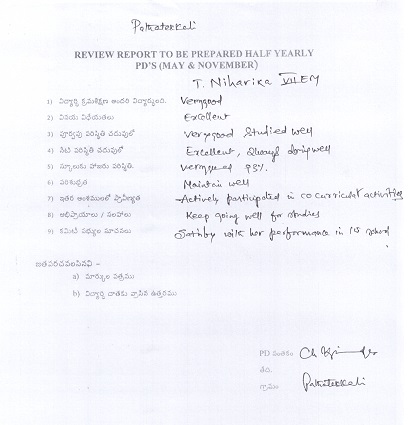 Pathatekkali
REVIEW REPORT TO BE PREPARED HALF YEARLY
PD'S (MAY & NOVEMBER)
T. Niharika VII EM
1) విద్యార్థి క్రమశిక్షణ అందరి విద్యార్థులది. Verygood
2) వినయ విధేయతలు Excellent
3) పూర్వపు పరిస్థితి చదువులో Verygood Studied well
4) నేటి పరిస్థితి చదువులో Excellent, Always doing well
5) స్కూలుకు హాజరు పరిస్థితి. Verygood 93%.
6) పరిశుభ్రత Maintain well
7) ఇతర అంశములలో ప్రావీణ్యత Actively participated in co curricular activities
8) అభిప్రాయాలు / సలహాలు Keep going well for studies
9) కమిటీ సభ్యుల సూచనలు with her performance in school
జతపరచవలసినవి –
a) మార్కుల పత్రము
b) విద్యార్థి దాతకు వ్రాసిన ఉత్తరము
PD సంతకం
తేది.
గ్రామం Pathatekkali